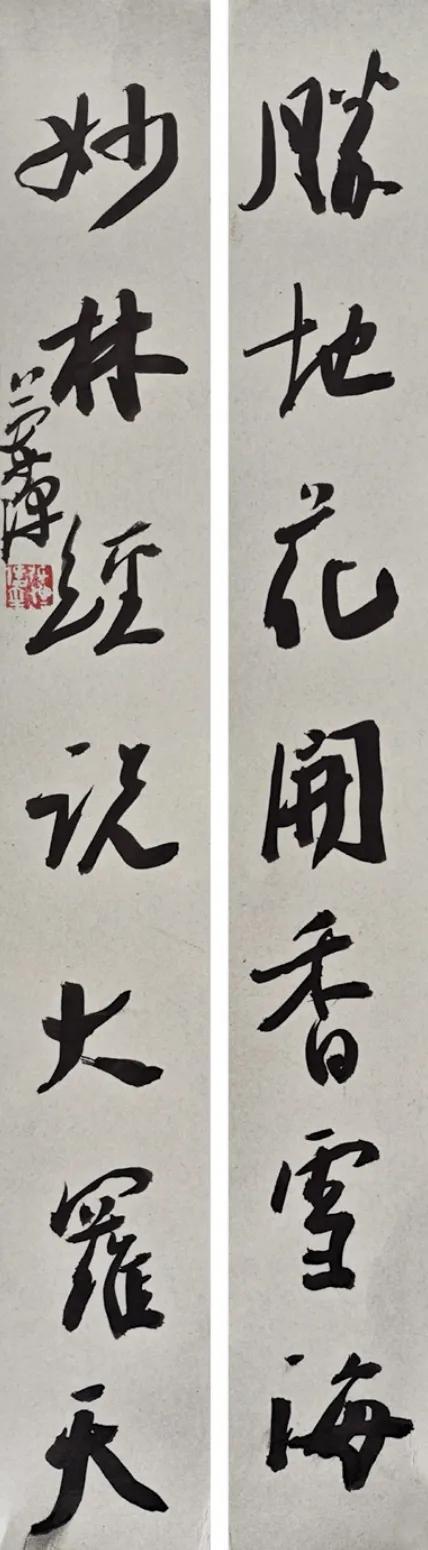 勝地花開香雪海
妙林經説大羅天